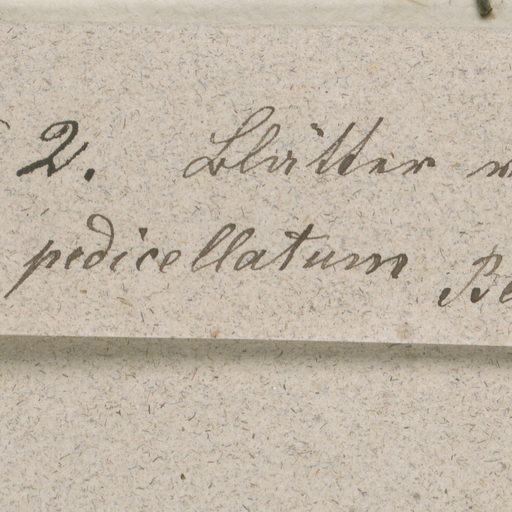 2. Blätter
pedicellatum Be